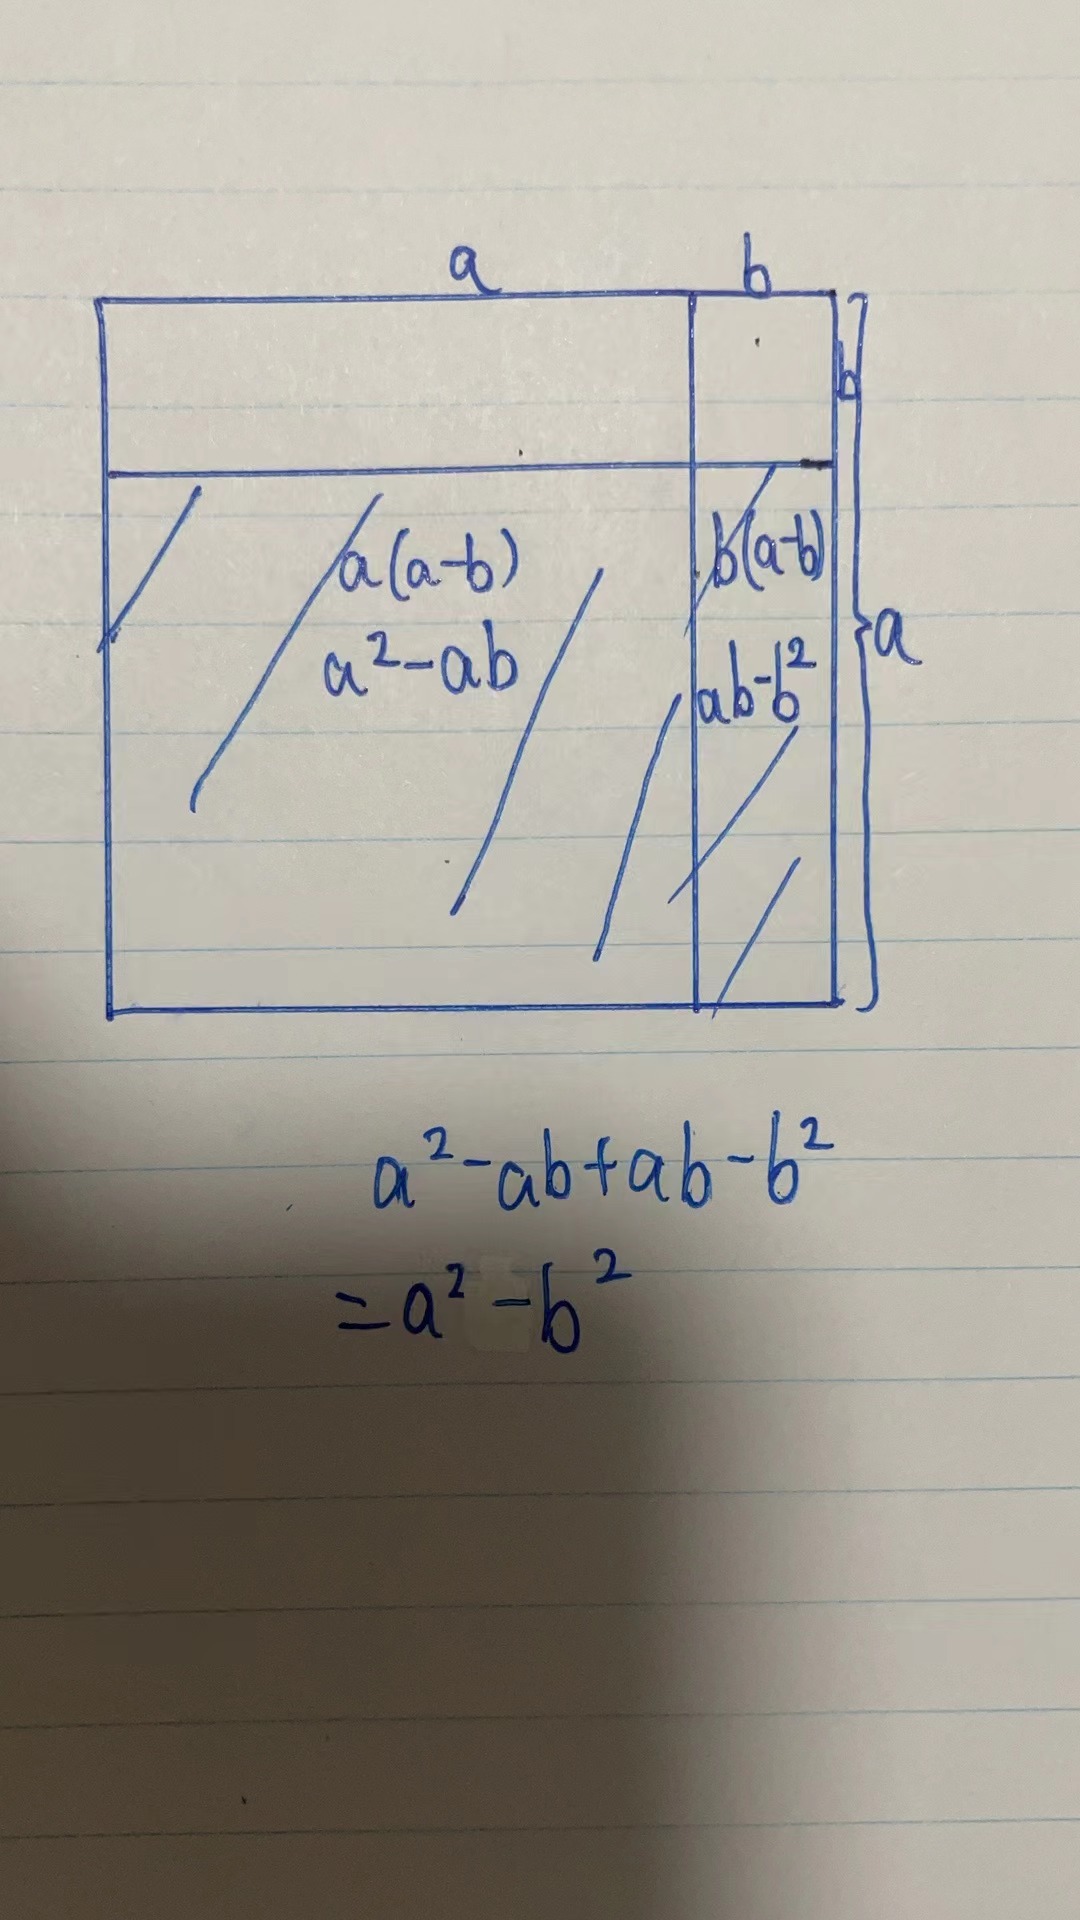 a b
b
a(a-b) b(a-b)
a
a²-ab ab-b²
a²-ab+ab-b²
=a²-b²